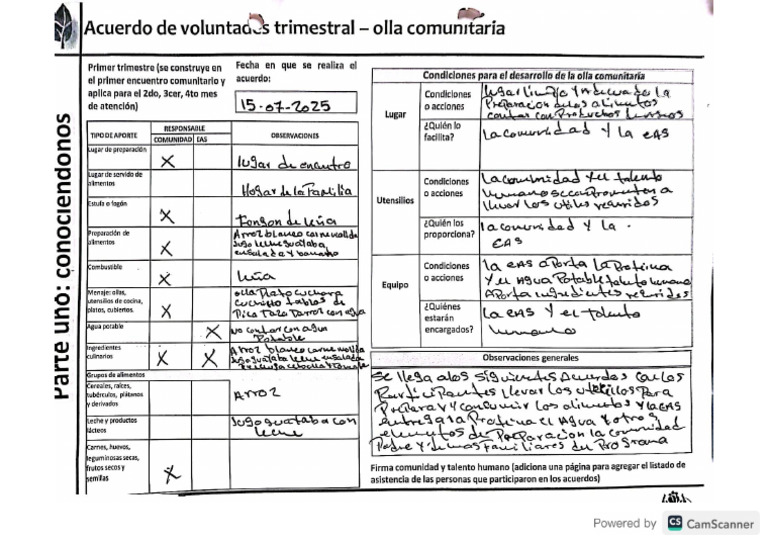 Acuerdo de voluntades trimestral – olla comunitaria
Parte uno: conociendonos
Primer trimestre (se construye en
el primer encuentro comunitario y
aplica para el 2do, 3cer, 4to mes
de atención)
Fecha en que se realiza el
acuerdo:
15-07-2025
TIPO DE APORTE
RESPONSABLE
COMUNIDAD EAS
OBSERVACIONES
Lugar de preparación X lugar de encuntro
Lugar de servido de
alimentos
Hogar de la Familia
Estufa o fogón X Fongon de leña
Preparación de
alimentos X
Arroz blanco carne molida
Jugo leche guataba
ensalada y banano
Combustible X leña
Menaje: ollas,
utensilios de cocina,
platos, cubiertos X
olla Plato cuchara
cuchillo tablas de
Pica Taza Tarros con agua
Agua potable X No contar con agua
Potable
Ingredientes
culinarios X X
Arroz blanco carne molida
Jugo guataba leche ensalada
Grupos de alimentos
Cereales, raíces,
tubérculos, plátanos
y derivados
Arroz
Leche y productos
lácteos
Jugo guataba con
leche
Carnes, huevos,
leguminosas secas,
frutos secos y
semillas X
Condiciones para el desarrollo de la olla comunitaria
Lugar
Condiciones
o acciones
lugar limpio y adecuado la
Preparacion de los alimentos
contar con Productos
¿Quién lo
facilita?
La comunidad y la EAS
Utensilios
Condiciones
o acciones
La comunidad y el talento
humano se comprometen a
llevar los utiles requridos
¿Quién los
proporciona?
la comunidad y la
EAS
Equipo
Condiciones
o acciones
la EAS aPorta la Proteina
y el Agua Potable talento humano
APorta ingredientes requridos
¿Quiénes
estarán
encargados?
la EAS y el talento
humano
Observaciones generales
se llega a los siguientes Acuerdos con los
Participantes llevar los utencilios Para
Preparar y consumir los alimentos y la EAS
entrega la Proteina el Agua y otros
elementos de PreParación la comunidad
Padre y demas Familiares del Programa
Firma comunidad y talento humano (adiciona una página para agregar el listado de
asistencia de las personas que participaron en los acuerdos)
Powered by CS CamScanner